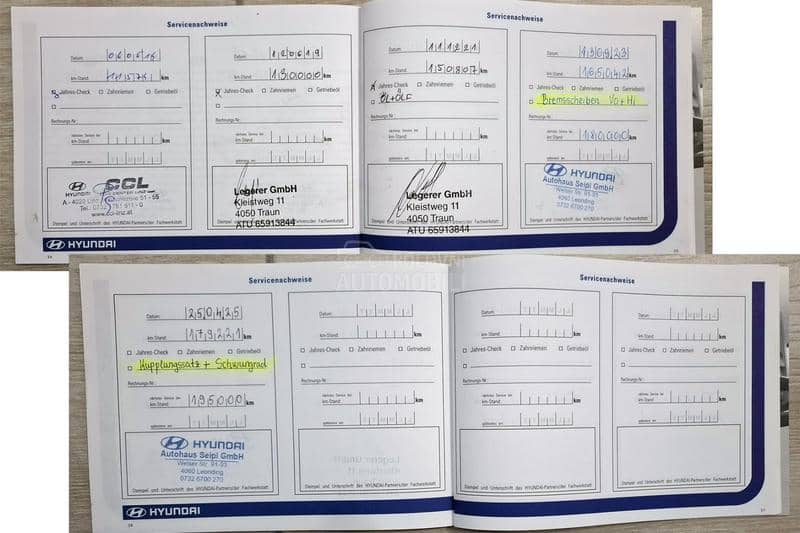 Servicenachweise
Datum: 060516
km-Stand: 111576 km
Jahres-Check Zahnriemen Getriebeöl
Rechnungs-Nr.:
nächstes Service bei
km-Stand:
spätestens am:
HYUNDAI CCL
A - 4020 Linz
www.ccl-linz.at
Stempel und Unterschrift des HYUNDAI-Partners/der Fachwerkstatt
Datum: 120619
km-Stand: 130000 km
Jahres-Check Zahnriemen Getriebeöl
Rechnungs-Nr.:
nächstes Service bei
km-Stand:
spätestens am:
Legerer GmbH
Kleistweg 11
4050 Traun
ATU 65913844
Stempel und Unterschrift des HYUNDAI-Partners/der Fachwerkstatt
HYUNDAI
Servicenachweise
Datum: 111221
km-Stand: 150807 km
Jahres-Check Zahnriemen Getriebeöl
ÖL+ÖLF
Rechnungs-Nr.:
nächstes Service bei
km-Stand:
spätestens am:
Legerer GmbH
Kleistweg 11
4050 Traun
ATU 65913844
Stempel und Unterschrift des HYUNDAI-Partners/der Fachwerkstatt
Datum: 130923
km-Stand: 165042 km
Jahres-Check Zahnriemen Getriebeöl
Bremsscheiben Vo+Hi
Rechnungs-Nr.:
nächstes Service bei
km-Stand: 180000 km
spätestens am:
HYUNDAI
Autohaus Seipl GmbH
Welser Str. 91-93
4060 Leonding
0732 6700 270
Stempel und Unterschrift des HYUNDAI-Partners/der Fachwerkstatt
AUTOMOBILI
Servicenachweise
Datum: 250425
km-Stand: 179221 km
Jahres-Check Zahnriemen Getriebeöl
Kupplungssatz + Schwungrad
Rechnungs-Nr.:
nächstes Service bei
km-Stand: 195000 km
spätestens am:
HYUNDAI
Autohaus Seipl GmbH
Welser Str. 91-93
4060 Leonding
0732 6700 270
Stempel und Unterschrift des HYUNDAI-Partners/der Fachwerkstatt
Datum: T T M M J J
km-Stand: km
Jahres-Check Zahnriemen Getriebeöl
Rechnungs-Nr.:
nächstes Service bei
km-Stand: km
spätestens am: T T M M J J
Stempel und Unterschrift des HYUNDAI-Partners/der Fachwerkstatt
HYUNDAI
Servicenachweise
Datum: T T M M J J
km-Stand: km
Jahres-Check Zahnriemen Getriebeöl
Rechnungs-Nr.:
nächstes Service bei
km-Stand: km
spätestens am: T T M M J J
Stempel und Unterschrift des HYUNDAI-Partners/der Fachwerkstatt
Datum: T T M M J J
km-Stand: km
Jahres-Check Zahnriemen Getriebeöl
Rechnungs-Nr.:
nächstes Service bei
km-Stand: km
spätestens am: T T M M J J
Stempel und Unterschrift des HYUNDAI-Partners/der Fachwerkstatt